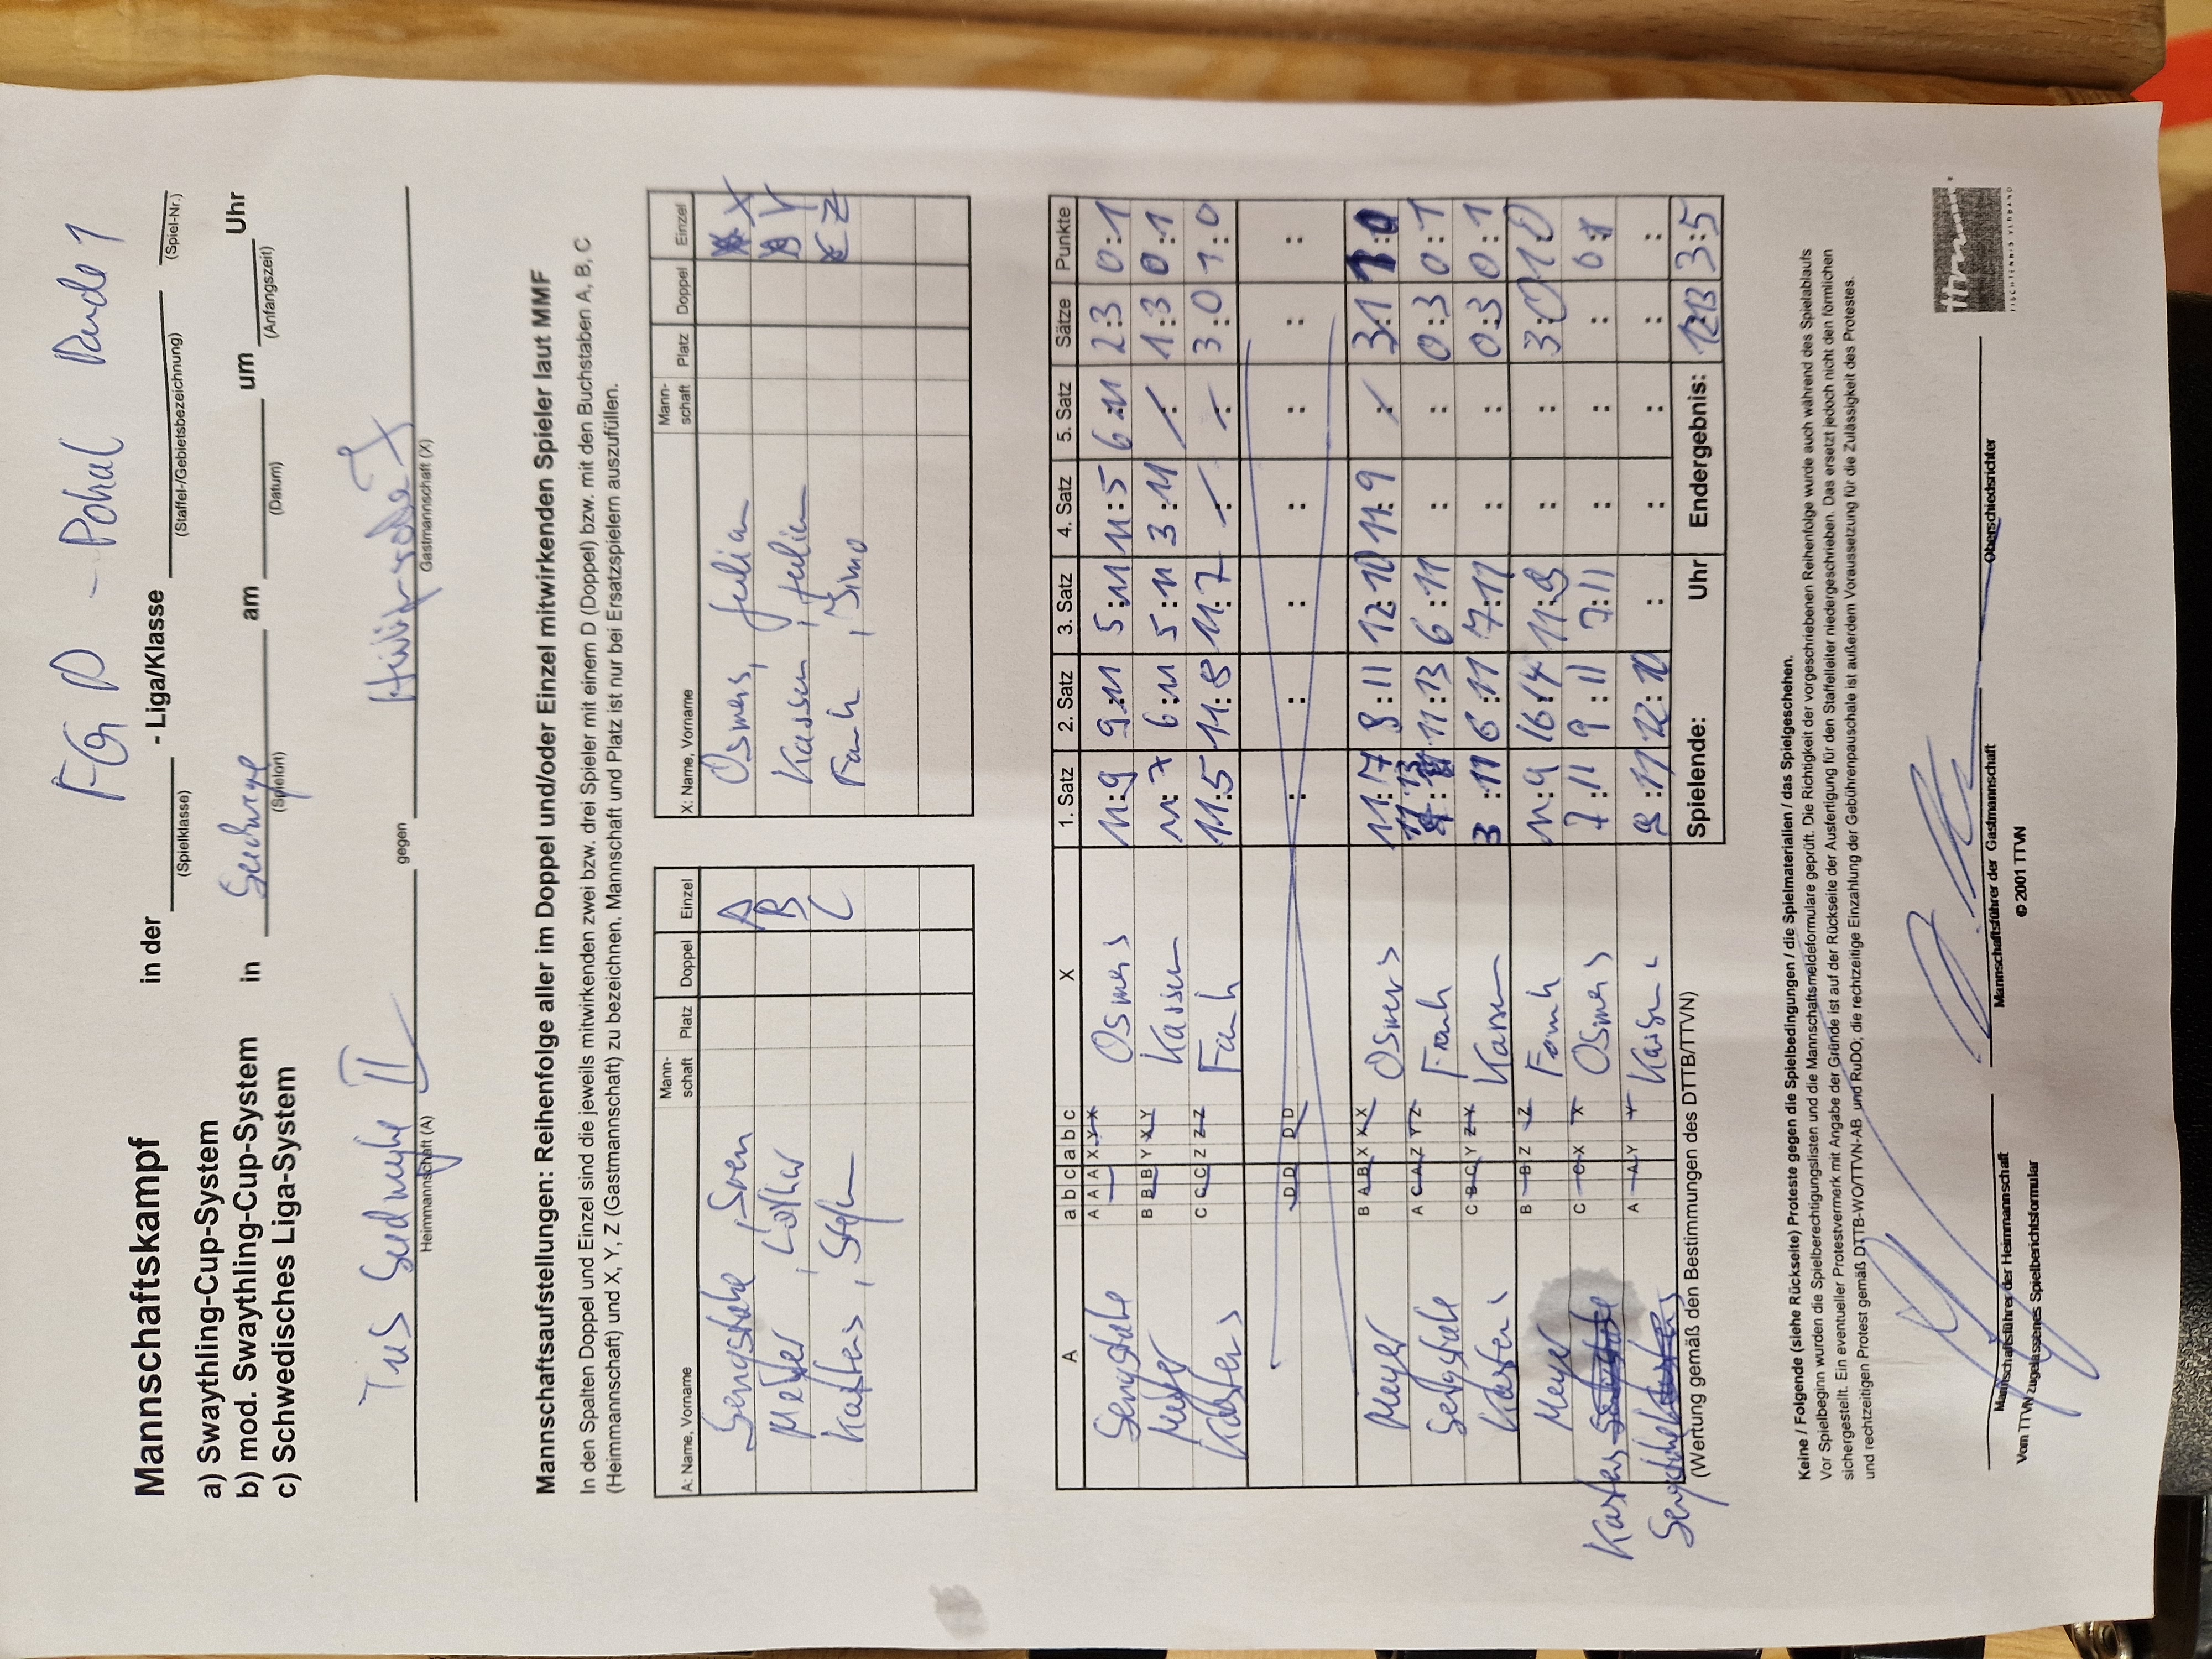 FGr D - Pokal Runde 1
Mannschaftskampf in der - Liga/Klasse
(Spielklasse) (Staffel-/Gebietsbezeichnung) (Spiel-Nr.)
a) Swaythling-Cup-System
b) mod. Swaythling-Cup-System in am um Uhr
c) Schwedisches Liga-System (Spielort) (Datum) (Anfangszeit)
TuS II gegen
Heimmannschaft (A) Gastmannschaft (X)
Mannschaftsaufstellungen: Reihenfolge aller im Doppel und/oder Einzel mitwirkenden Spieler laut MMF
In den Spalten Doppel und Einzel sind die jeweils mitwirkenden zwei bzw. drei Spieler mit einem D (Doppel) bzw. mit den Buchstaben A, B, C
(Heimmannschaft) und X, Y, Z (Gastmannschaft) zu bezeichnen. Mannschaft und Platz ist nur bei Ersatzspielern auszufüllen.
A: Name, Vorname Mann-schaft Platz Doppel Einzel X: Name, Vorname Mann-schaft Platz Doppel Einzel
Sengstake, Sven A Osmers, Julian X
Meyer, Lothar B Kassen, Julian Y
Karstens, C Frank, Timo Z
A a b c a b c X 1. Satz 2. Satz 3. Satz 4. Satz 5. Satz Sätze Punkte
Sengstake A A A X Y X Osmers 11:9 9:11 5:11 11:5 6:11 2:3 0:1
Meyer B B B Y X Y Kassen 11:7 6:11 5:11 3:11 1:3 0:1
Karstens C C C Z Z Z Frank 11:5 11:8 11:7 3:0 1:0
D D D D
Meyer B A B X X X Osmers 11:7 8:11 12:10 11:9 3:1 1:0
Sengstake A C A Z Y Z Frank 11:13 11:13 6:11 0:3 0:1
Karstens C B C Y Z Y Kassen 3:11 6:11 7:11 0:3 0:1
Meyer B B Z Z Frank 11:9 16:14 11:9 3:0 1:0
Karstens C C X X Osmers 7:11 9:11 7:11 0:1
Sengstake A A Y Y Kassen 9:11 12:10
(Wertung gemäß den Bestimmungen des DTTB/TTVN) Spielende: Uhr Endergebnis: 12:13 3:5
Keine / Folgende (siehe Rückseite) Proteste gegen die Spielbedingungen / die Spielmaterialien / das Spielgeschehen.
Vor Spielbeginn wurden die Spielberechtigungslisten und die Mannschaftsmeldeformulare geprüft. Die Richtigkeit der vorgeschriebenen Reihenfolge wurde auch während des Spielablaufs
sichergestellt. Ein eventueller Protestvermerk mit Angabe der Gründe ist auf der Rückseite der Ausfertigung für den Staffelleiter niedergeschrieben. Das ersetzt jedoch nicht den förmlichen
und rechtzeitigen Protest gemäß DTTB-WO/TTVN-AB und RuDO; die rechtzeitige Einzahlung der Gebührenpauschale ist außerdem Voraussetzung für die Zulässigkeit des Protestes.
Mannschaftsführer der Heimmannschaft Mannschaftsführer der Gastmannschaft Oberschiedsrichter
Vom TTVN zugelassenes Spielberichtsformular © 2001 TTVN
ttvn
TISCHTENNIS VERBAND